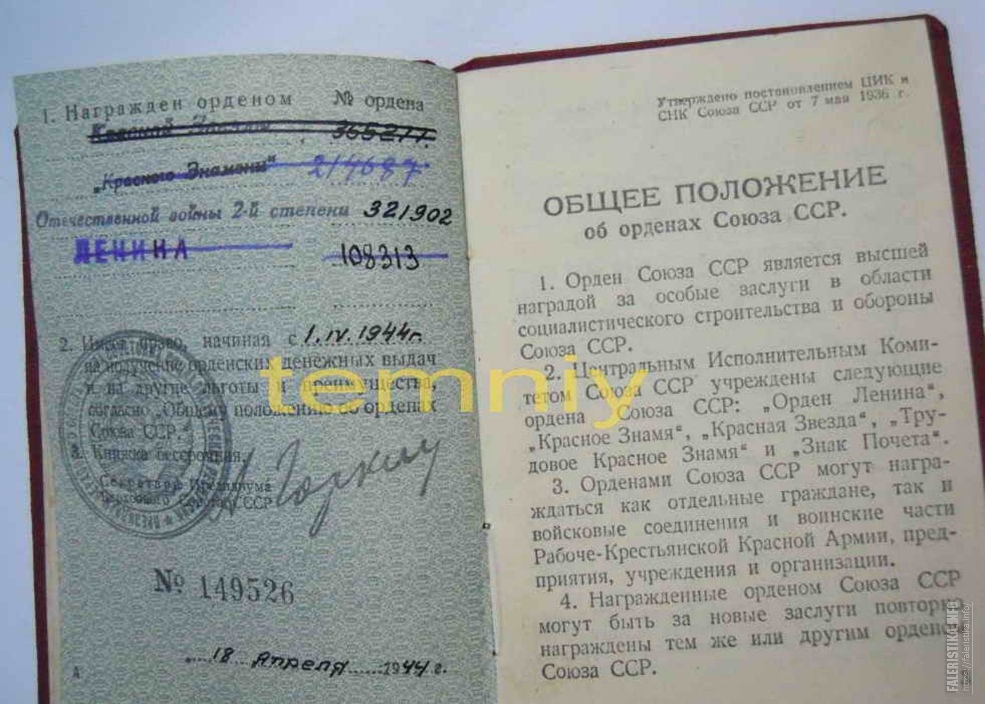 1. Награжден орденом № ордена
Красной Звезды 365277
„Красного Знамени" 214687
Отечественной войны 2-й степени 321902
ЛЕНИНА 108313
2. Имеет право, начиная с 1.IV.1944г.
на получение орденских денежных выдач
и на другие льготы и преимущества,
согласно „Общему положению об орденах
Союза ССР."
3. Книжка бессрочная.
Секретарь Президиума
Верховного Совета СССР
Горкин
№ 149526
18 Апреля 1944 г.
А
Утверждено постановлением ЦИК и
СНК Союза ССР от 7 мая 1936 г.
ОБЩЕЕ ПОЛОЖЕНИЕ
об орденах Союза ССР.
1. Орден Союза ССР является высшей
наградой за особые заслуги в области
социалистического строительства и обороны
Союза ССР.
2. Центральным Исполнительным Коми-
тетом Союза ССР учреждены следующие
ордена Союза ССР: „Орден Ленина",
„Красное Знамя", „Красная Звезда", „Тру-
довое Красное Знамя" и „Знак Почета".
3. Орденами Союза ССР могут награ-
ждаться как отдельные граждане, так и
войсковые соединения и воинские части
Рабоче-Крестьянской Красной Армии, пред-
приятия, учреждения и организации.
4. Награжденные орденом Союза ССР
могут быть за новые заслуги повторно
награждены тем же или другим орденом
Союза ССР.
temniy
FALERISTIKA.INFO
https://faleristika.info/